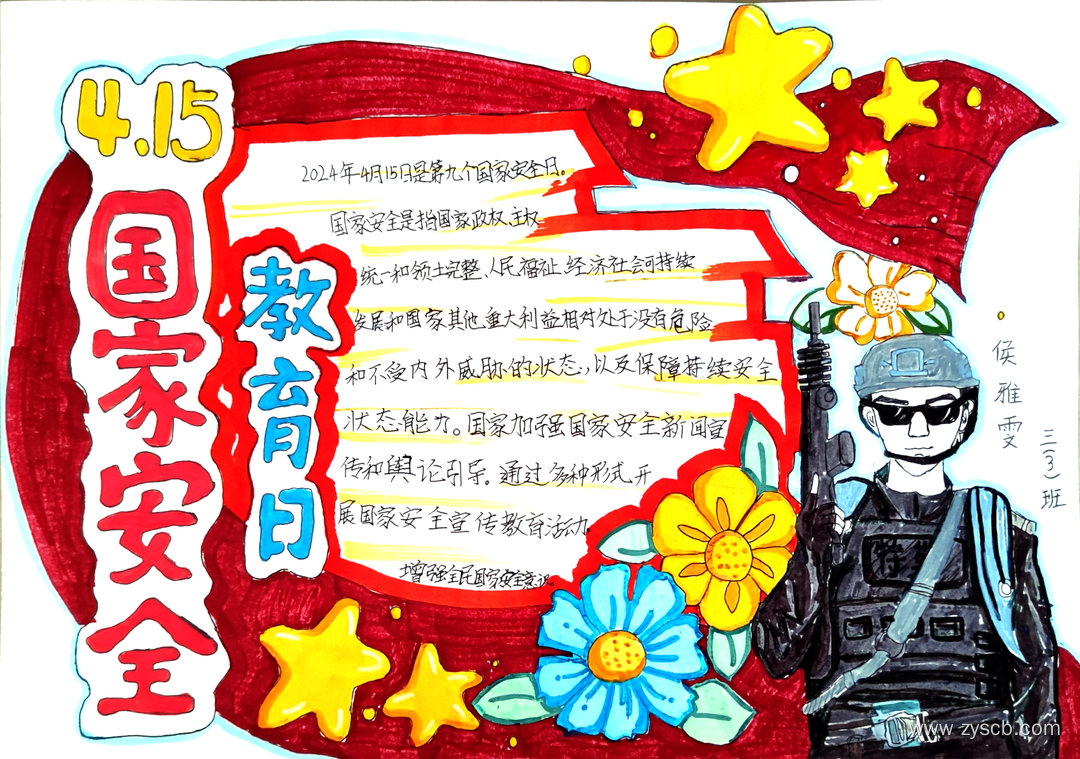 4.15
国家安全
教育日
2024年4月15日是第九个国家安全日。
国家安全是指国家政权、主权、
统一和领土完整、人民福祉、经济社会可持续
发展和国家其他重大利益相对处于没有危险
和不受内外威胁的状态，以及保障持续安全
状态能力。国家加强国家安全新闻宣
传和舆论引导。通过多种形式开
展国家安全宣传教育活动
增强全民国家安全意识。
侯雅雯
三(3)班
特警
www.zyscb.com